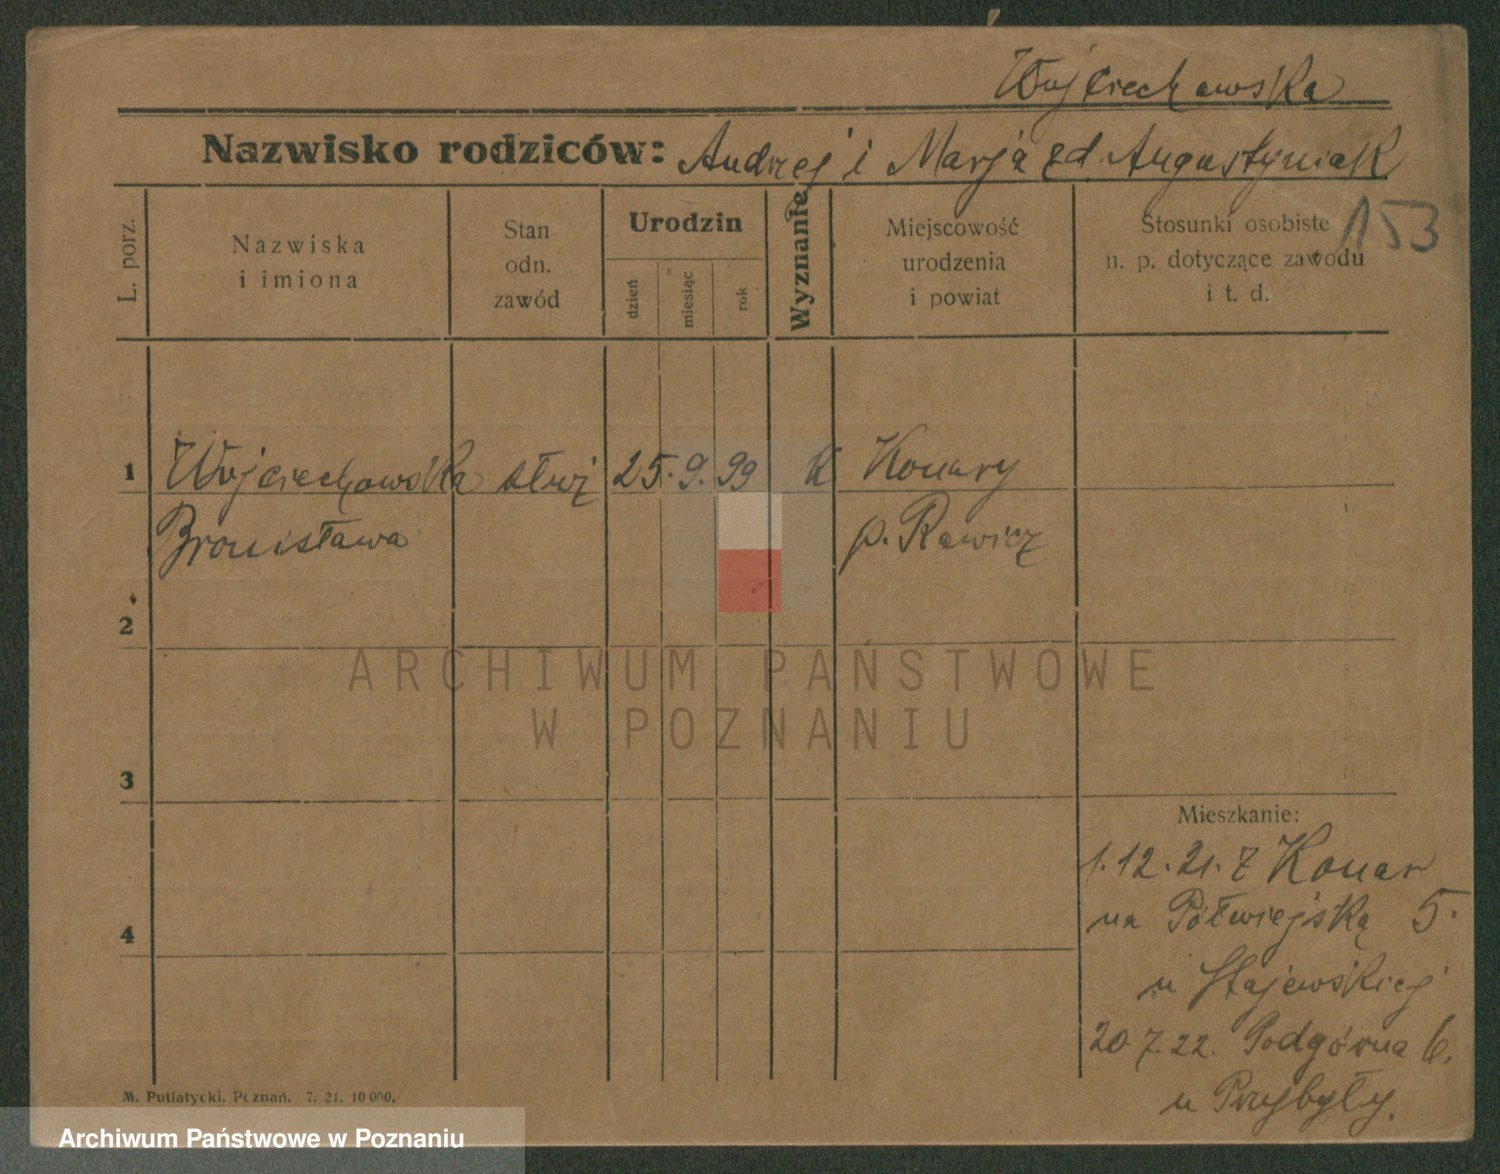 Wojciechowska
Nazwisko rodziców: Andrzej i Marja zd. Augustyniak
153
L. porz.
Nazwiska
i imiona
Stan
odn.
zawód
Urodzin
dzień
miesiąc
rok
Wyznanie
Miejscowość
urodzenia
i powiat
Stosunki osobiste
n. p. dotyczące zawodu
i t. d.
1 Wojciechowska służ 25. 9. 99 K Konary
Bronisława p. Rawicz
2
ARCHIWUM PAŃSTWOWE
W POZNANIU
3
Mieszkanie:
1. 12. 21. z Konar
na Półwiejską 5.
4
u Stajewskiej
20 7. 22. Podgórna 6.
u Przybyły.
M. Putiatycki, Poznań. 7. 21. 10 000.
Archiwum Państwowe w Poznaniu